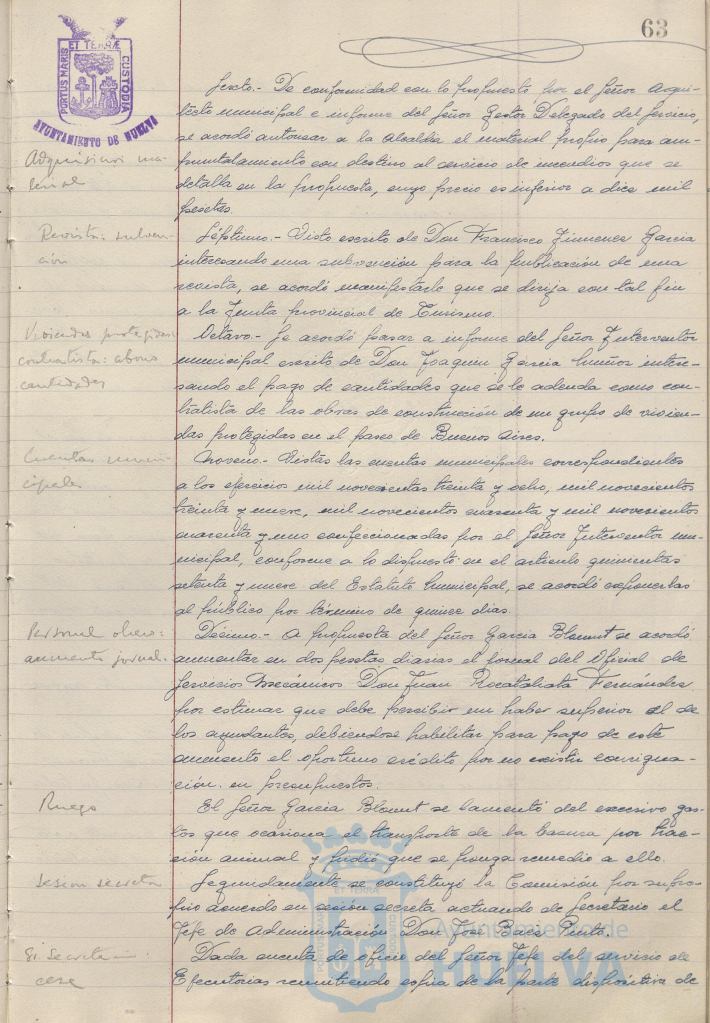 63
ET TERRÆ
PORTUS MARIS
CUSTODIA
AYUNTAMIENTO DE HUELVA
Sexto.- De conformidad con lo propuesto por el Señor Arqui-
tecto municipal e informe del Señor Gestor Delegado del Servicio,
se acordó autorizar a la Alcaldía el material propio para am-
puntalamiento con destino al servicio de incendios que se
detalla en la propuesta, cuyo precio es inferior a diez mil
pesetas.
Adquisicion ma-
terial
Séptimo.- Visto escrito de Don Francisco Jimenez Garcia
interesando una subvención para la publicación de una
revista, se acordó manifestarle que se dirija con tal fin
a la Junta provincial de Turismo.
Revista: subven-
ción
Octavo.- Se acordó pasar a informe del Señor Interventor
municipal escrito de Don Joaquin Garcia Muñoz intere-
sando el pago de cantidades que se le adeuda como con-
tratista de las obras de construcción de un grupo de vivien-
das protegidas en el paseo de Buenos Aires.
Viviendas protegidas
contratista: abono
cantidades
Noveno.- Vistas las cuentas municipales correspondientes
a los ejercicios mil novecientos treinta y ocho, mil novecientos
treinta y nueve, mil novecientos cuarenta y mil novecientos
cuarenta y uno confeccionadas por el Señor Interventor mu-
nicipal, conforme a lo dispuesto en el artículo quinientos
setenta y nueve del Estatuto Municipal, se acordó exponerlas
al público por término de quince dias.
Cuentas muni-
cipales
Décimo.- A propuesta del Señor Garcia Blamut se acordó
aumentar en dos pesetas diarias el jornal del Oficial de
Servicios Mecánicos Don Juan Rocatallata Fernández
por estimar que debe percibir un haber superior al de
los ayudantes, debiéndose habilitar para pago de este
aumento el oportuno crédito por no existir consigna-
ción en presupuestos.
Personal obrero:
aumento jornal.
El Señor Garcia Blamut se lamentó del excesivo gas-
to que ocasiona el transporte de la basura por trac-
ción animal y pidió que se ponga remedio a ello.
Ruego
Seguidamente se constituyó la Comisión por su pro-
pio acuerdo en sesión secreta actuando de Secretario el
Jefe de Administración Don José Baca Pinto.
Sesion secreta
Dada cuenta de oficio del Señor Jefe del servicio de
Ejecutorias remitiendo copia de la parte dispositiva de
Sr. Secretario
cese
Ayuntamiento de
HUELVA